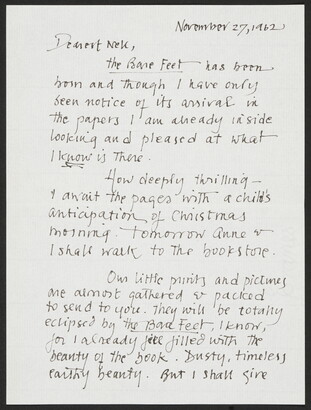 November 27, 1962
Dearest Nell,
the Bare Feet has been
born and though I have only
seen notice of its arrival in
the papers I am already inside
looking and pleased at what
I know is there.
How deeply thrilling –
I await the pages with a child's
anticipation of Christmas
morning. Tomorrow Anne &
I shall walk to the bookstore.
Our little prints and pictures
are almost gathered & packed
to send to you. They will be totally
eclipsed by the Bare Feet, I know,
for I already feel filled with the
beauty of the book. Dusty, timeless
earthy beauty. But I shall give